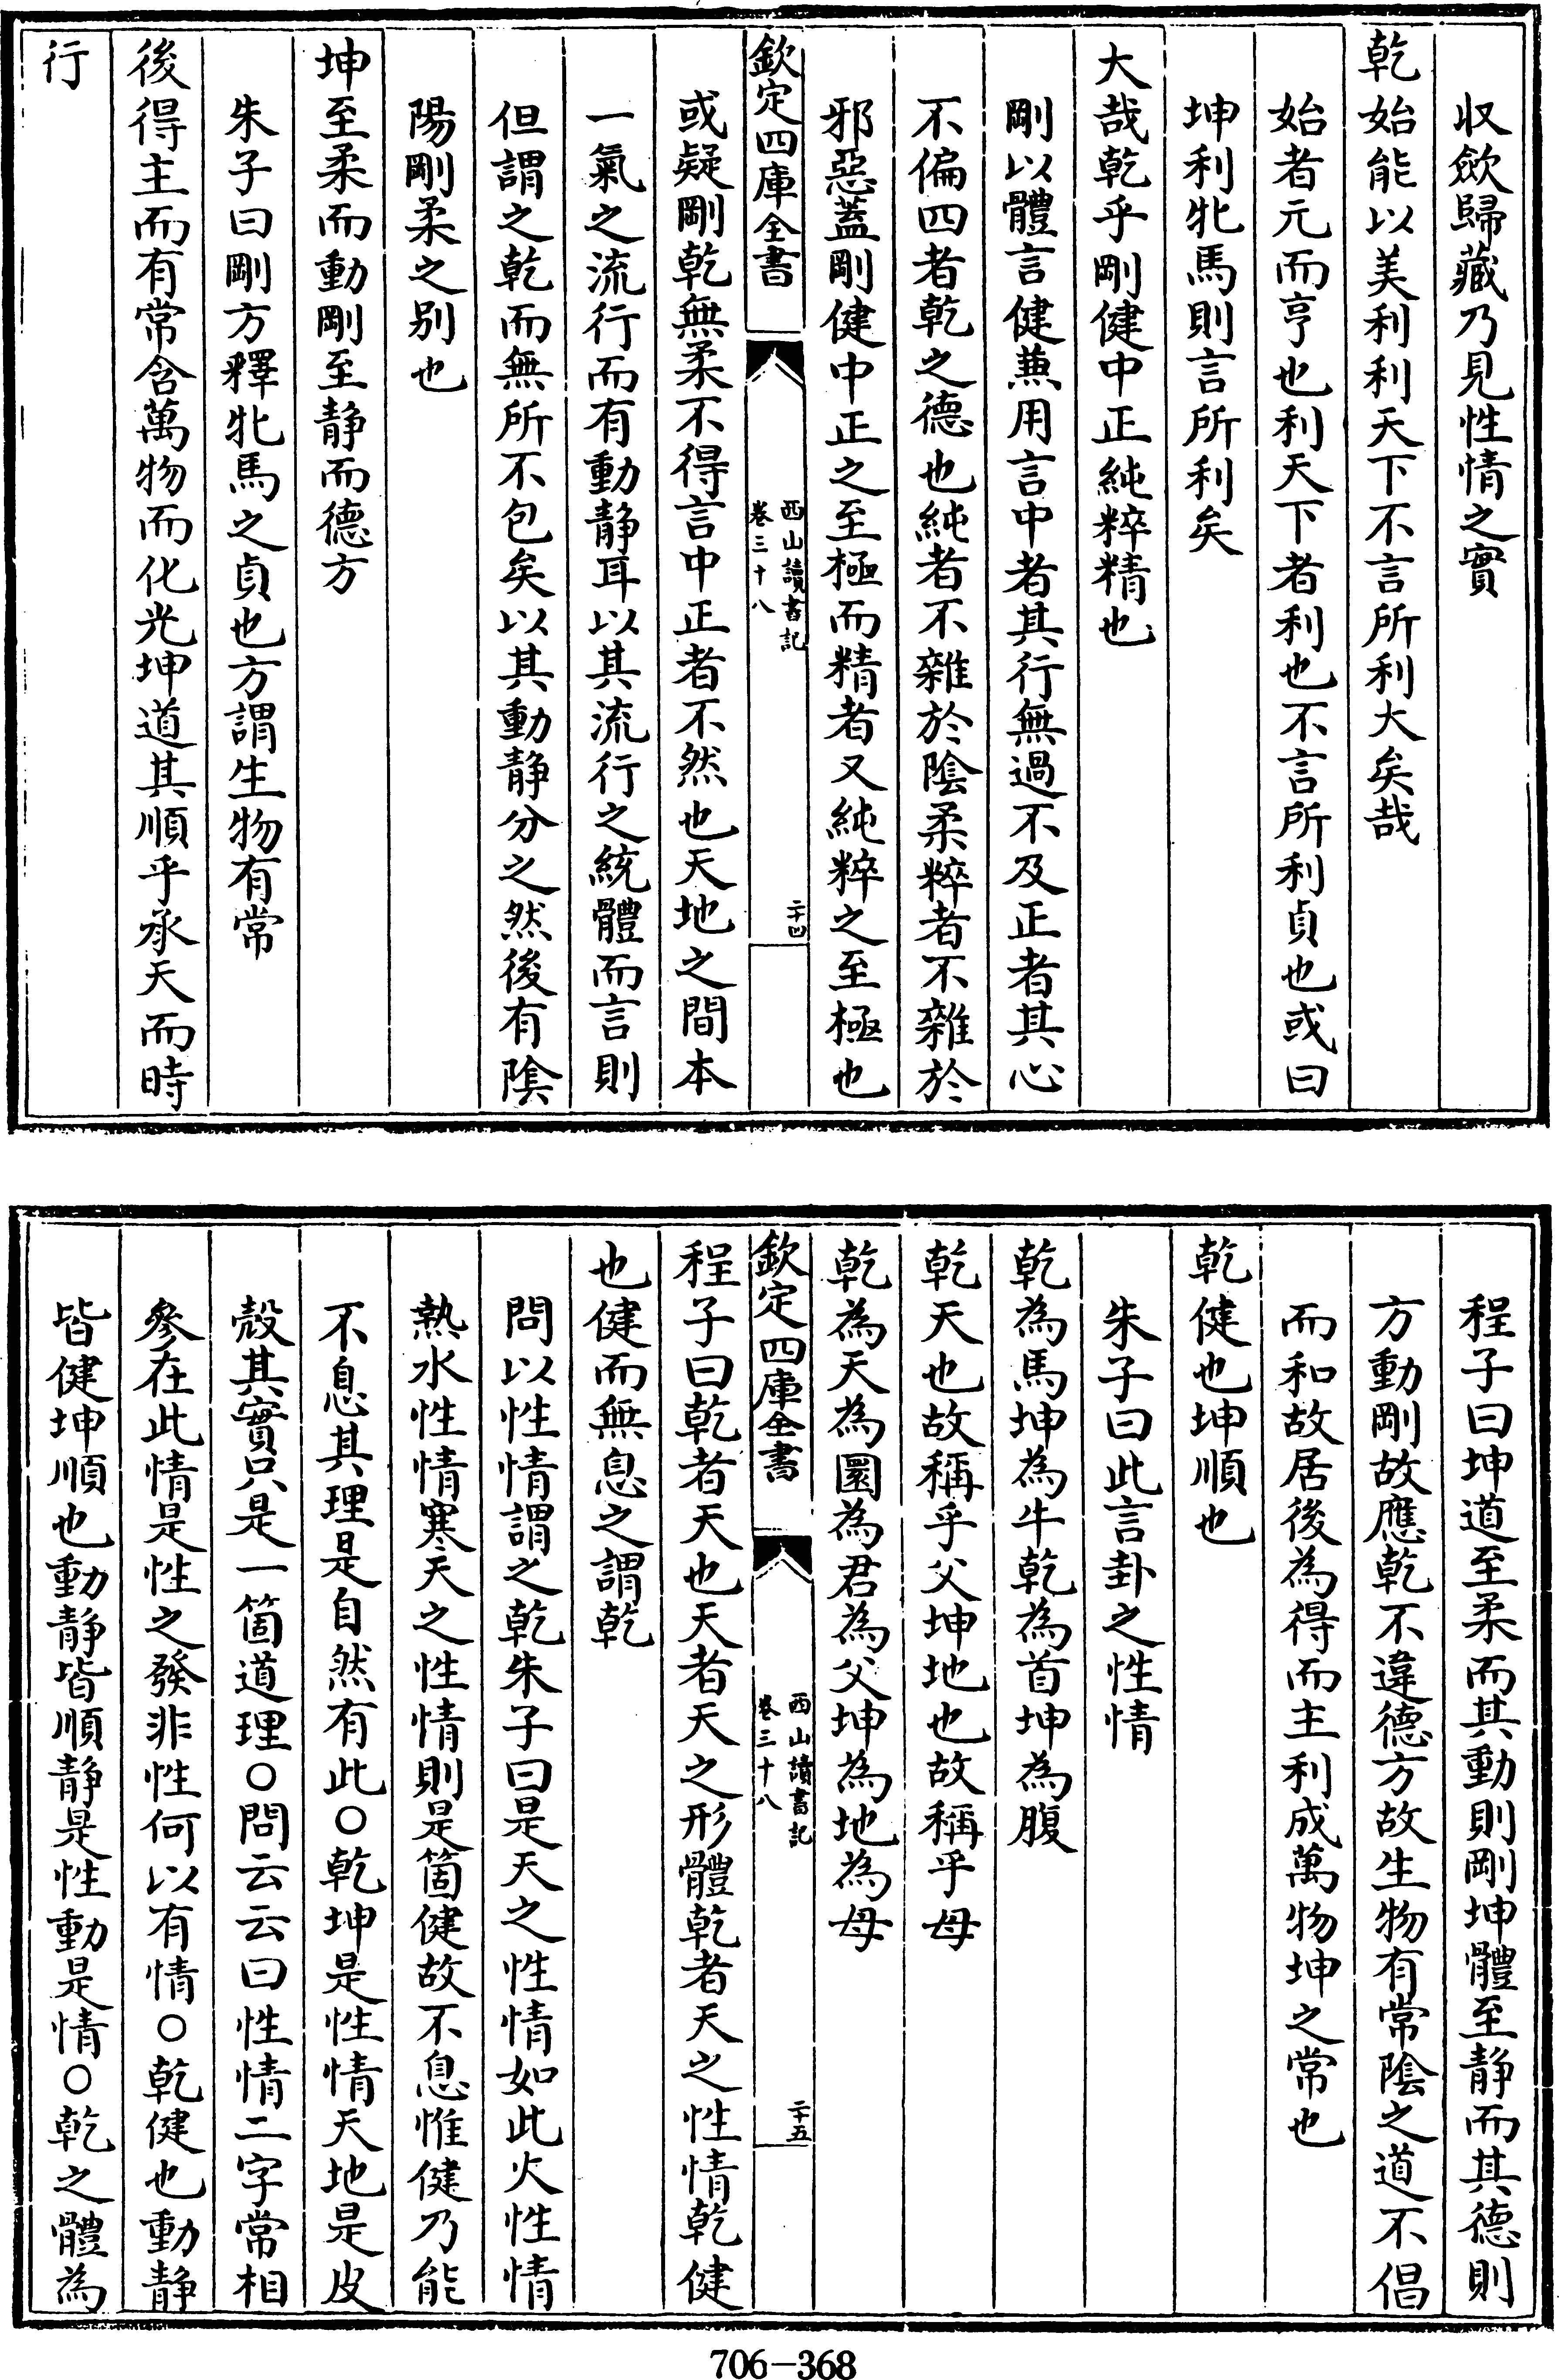 收歛歸藏乃見性情之實
乾始能以美利利天下不言所利大矣哉
始者元而亨也利天下者利也不言所利貞也或曰
坤利牝馬則言所利矣
大哉乾乎剛健中正純粹精也
剛以體言健兼用言中者其行無過不及正者其心
不偏四者乾之德也純者不雜於陰柔粹者不雜於
邪惡蓋剛健中正之至極而精者又純粹之至極也
欽定四庫全書
西山讀書記
卷三十八
二十四
或疑剛乾無柔不得言中正者不然也天地之間本
一氣之流行而有動靜耳以其流行之統體而言則
但謂之乾而無所不包矣以其動靜分之然後有陰
陽剛柔之别也
坤至柔而動剛至靜而德方
朱子曰剛方釋牝馬之貞也方謂生物有常
後得主而有常含萬物而化光坤道其順乎承天而時
行
程子曰坤道至柔而其動則剛坤體至靜而其德則
方動剛故應乾不違德方故生物有常陰之道不倡
而和故居後為得而主利成萬物坤之常也
乾健也坤順也
朱子曰此言卦之性情
乾為馬坤為牛乾為首坤為腹
乾天也故稱乎父坤地也故稱乎母
乾為天為圜為君為父坤為地為母
欽定四庫全書
西山讀書記
卷三十八
二十五
程子曰乾者天也天者天之形體乾者天之性情乾健
也健而無息之謂乾
問以性情謂之乾朱子曰是天之性情如此火性情
熱水性情寒天之性情則是箇健故不息惟健乃能
不息其理是自然有此○乾坤是性情天地是皮
殼其實只是一箇道理○問云云曰性情二字常相
參在此情是性之發非性何以有情○乾健也動靜
皆健坤順也動靜皆順靜是性動是情○乾之體為
706-368